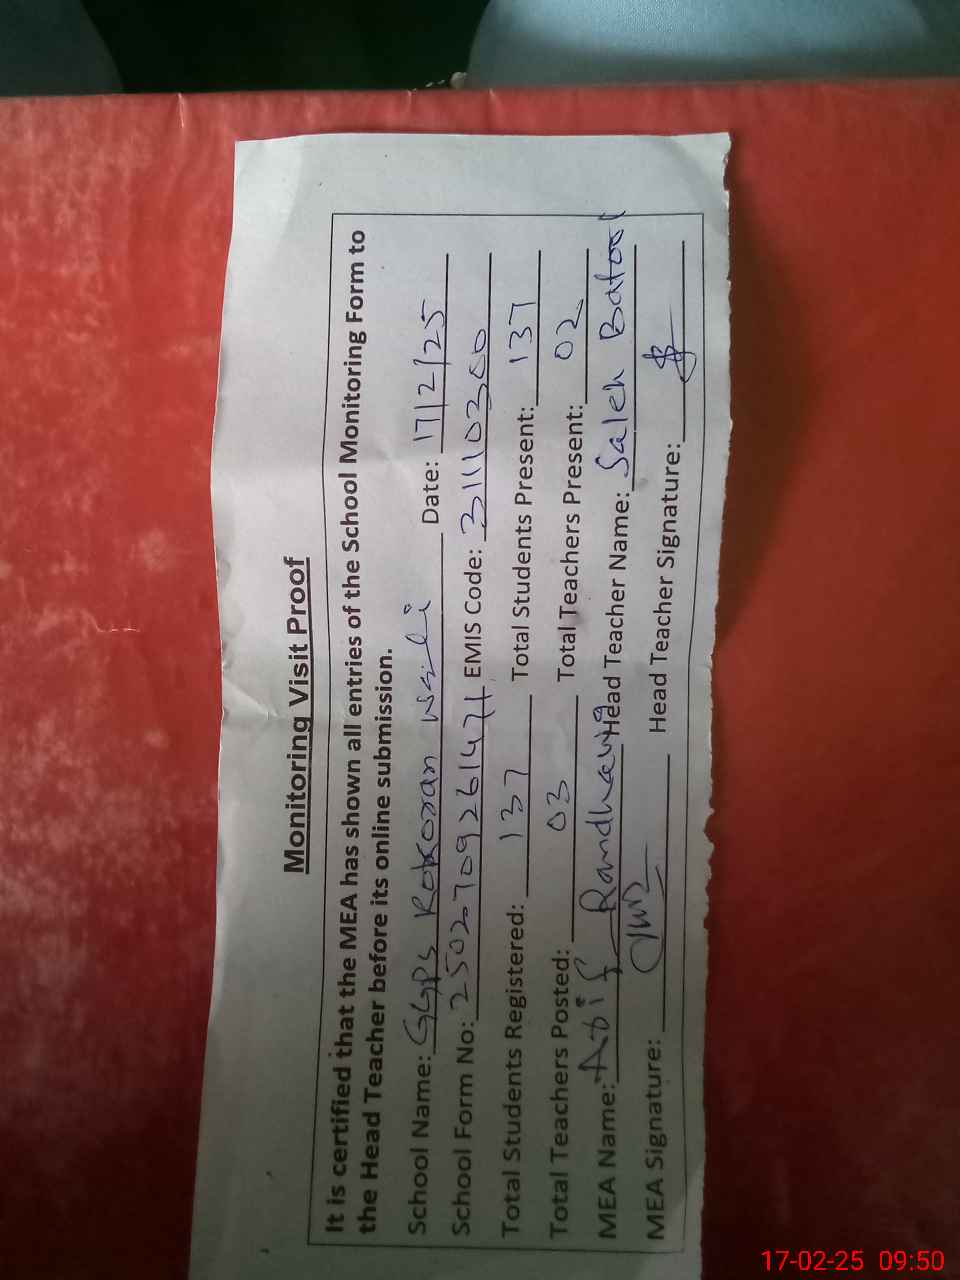 Monitoring Visit Proof
It is certified that the MEA has shown all entries of the School Monitoring Form to
the Head Teacher before its online submission.
School Name: GGPS Kokoran Wali Date: 17/2/25
School Form No: 2502709261471 EMIS Code: 31110300
Total Students Registered: 137 Total Students Present: 137
Total Teachers Posted: 03 Total Teachers Present: 02
MEA Name: Randhawa Head Teacher Name: Saleh Batool
MEA Signature: Head Teacher Signature:
17-02-25 09:50